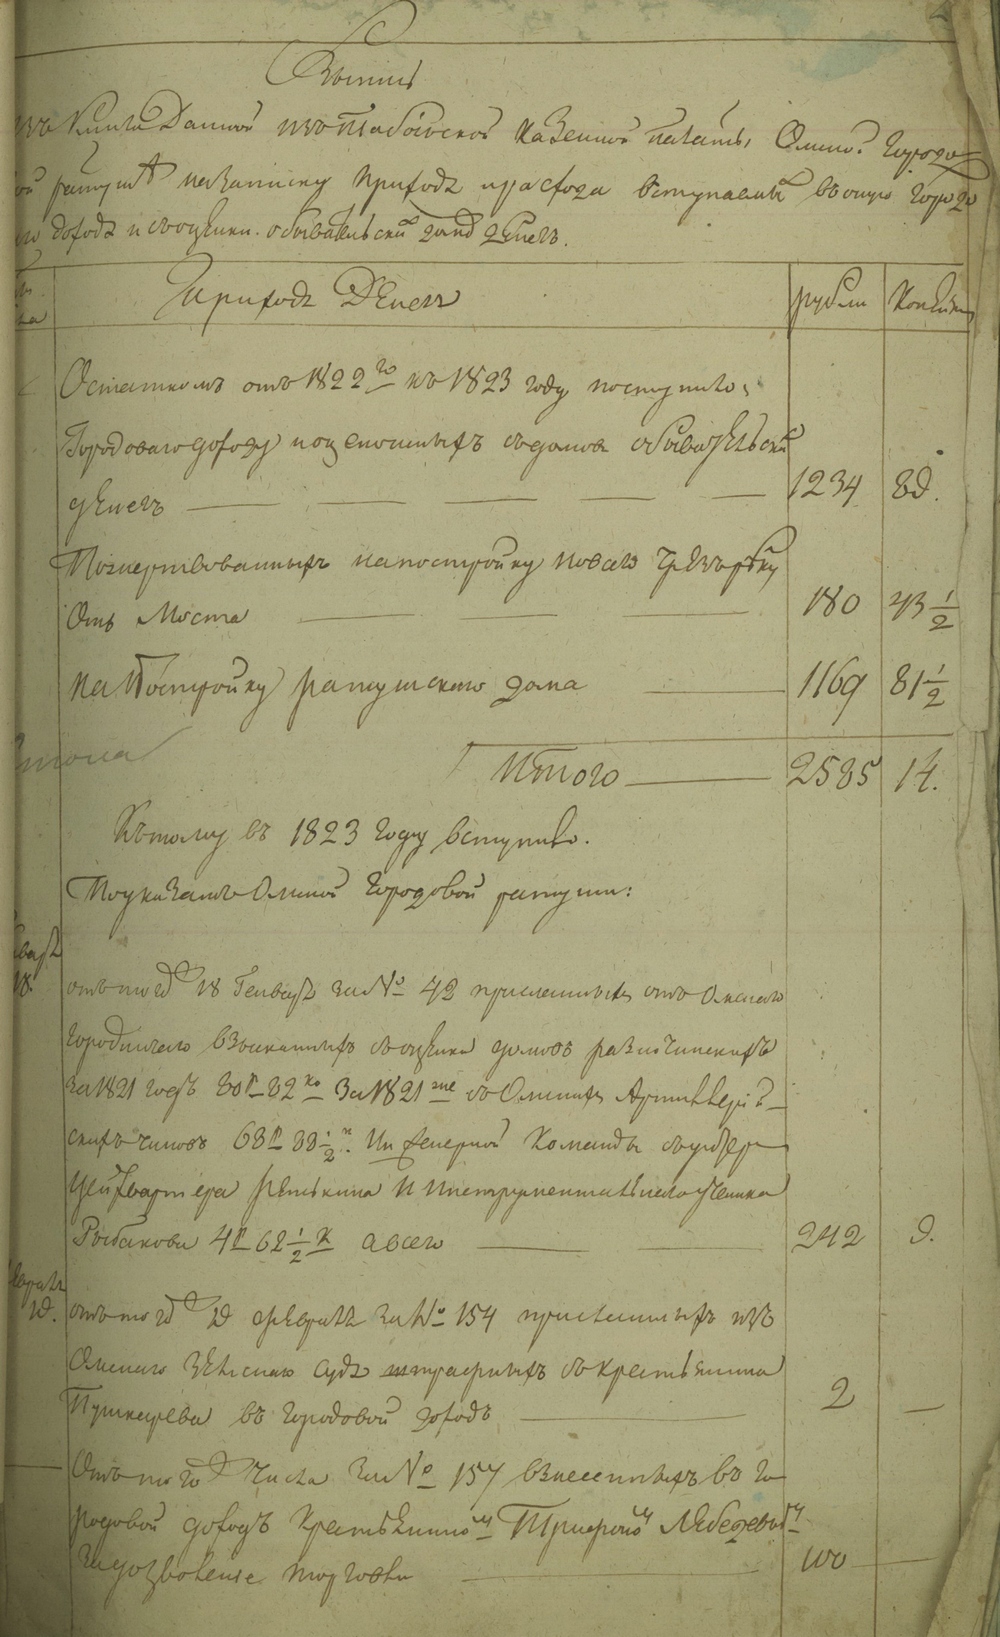 Выпись
изъ Книги Данной изъ Тобольской Казенной палаты, Омской Городо
вой ратуше на записку Прихода и расхода вступаемых в оную Городо
ваго дохода и с оценки обывательских домов денегъ.
Приходъ Денегъ
рубли
копейки
Остаткомъ отъ 1822го къ 1823 году поступило:
Городоваго доходу и оценочныхъ с домов обывательских
денегъ
1234
89.
Пожертвованныхъ на постройку новаго чрезъ реку
Омь Моста
180
43 1/2
на Постройку ратушскаго дома
1169
81 1/2
Итого
2585
14.
Къ тому въ 1823 Году вступило.
По указамъ Омской Городовой ратуши:
18.
отъ 18 Генваря за № 42 присланныхъ отъ Омскаго
Городничаго взысканныхъ с оценки домовъ разночинскихъ
за 1821 годъ 82 ко за 1821 с Омскихъ Артиллерій
скихъ чиновъ 68 р 38 1/2 к. Инженерной Команды с ундер
Цейхвартера Репкина и инструментальнаго ученика
Рыбакова 4 р 62 1/2 к а всего
242
9.
19.
отъ 19 февраля за № 154 присланныхъ изъ
Омскаго земскаго суда штрафныхъ с крестьянина
Пушкарева въ городовой доходъ
2
Отъ того числа за № 157 взнесенныхъ въ го
родовой доходъ Крестьяниномъ Трифономъ Лебедевымъ
за дозволение торговли
100